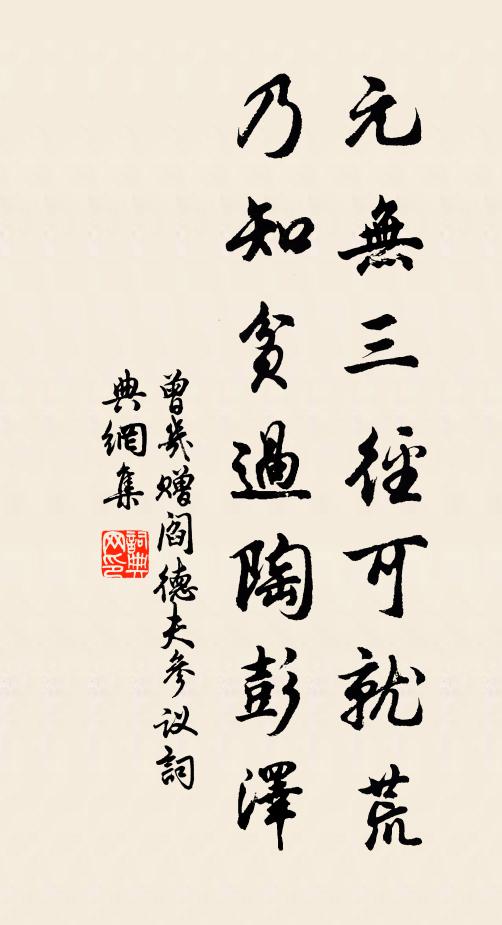 元無三徑可就荒
乃知貧過陶彭澤
曾幾贈閻德夫參议詞
典網集
詞典
网印